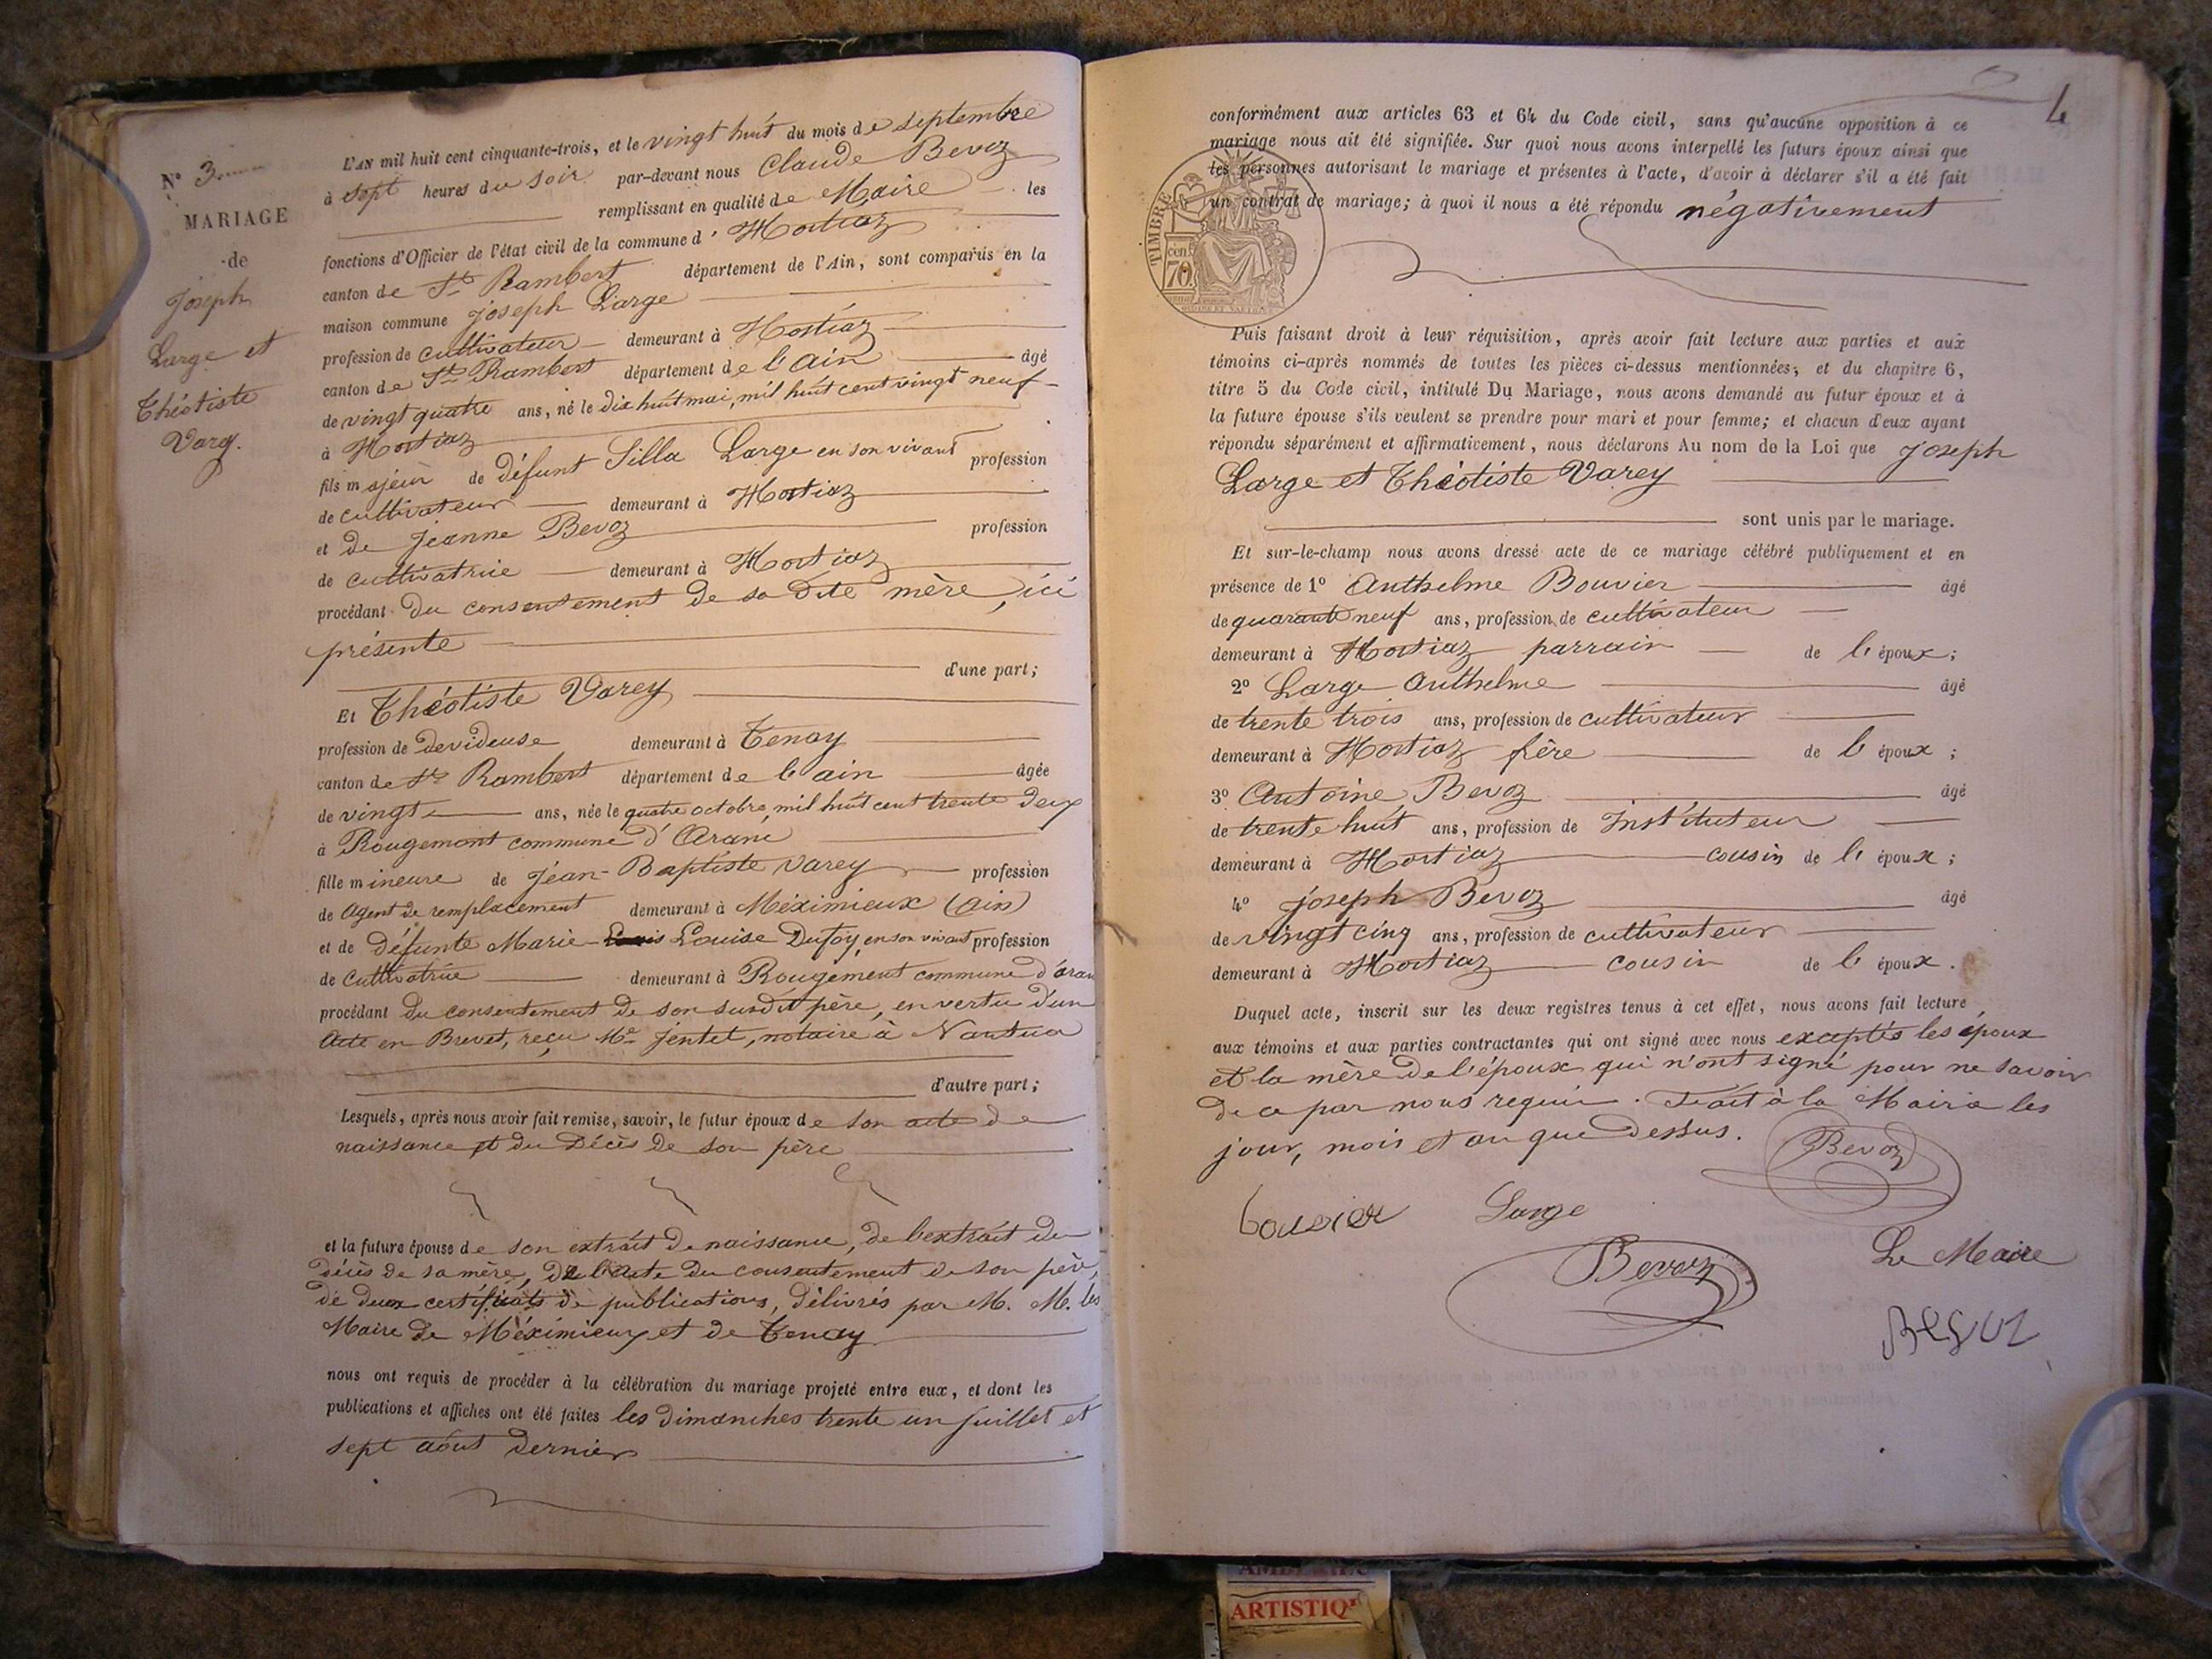 N° 3
MARIAGE
de
Joseph
Large et
Théotiste
Varey.
L'AN mil huit cent cinquante-trois, et le vingt huit du mois de septembre
à sept heures du soir par-devant nous Claude Bevoz
remplissant en qualité de Maire les
fonctions d'Officier de l'état civil de la commune d' Hostiaz
canton de St Rambert département de l'Ain, sont comparus en la
maison commune joseph Large
profession de cultivateur demeurant à Hostiaz
canton de St Rambert département de l'ain âgé
de vingt quatre ans, né le dix huit mai, mil huit cent vingt neuf
à Hostiaz
fils majeur de défunt Silla Large en son vivant profession
de cultivateur demeurant à Hostiaz
et de jeanne Bevoz profession
de cultivatrice demeurant à Hostiaz
procédant du consentement de sa dite mère, ici
présente
d'une part;
Et Théotiste Varey
profession de devideuse demeurant à Tenay
canton de St Rambert département de l'ain âgée
de vingt ans, née le quatre octobre, mil huit cent trente deux
à Rougemont commune d'Aranc
fille mineure de jean-Baptiste varey profession
de Agent de remplacement demeurant à Méximieux (ain)
et de défunte Marie Louise Dufoy, en son vivant profession
de cultivatrice demeurant à Rougement commune d'aran
procédant du consentement de son susdit père, en vertu d'un
acte en Brevet, reçu Me jentet, notaire à Nantua
d'autre part;
Lesquels, après nous avoir fait remise, savoir, le futur époux de son acte de
naissance et du Décès de son père
et la future épouse de son extrait de naissance, de l'extrait du
décès de sa mère, de l'acte du consentement de son père,
de deux certificats de publications, délivrés par M. M. les
Maire de Méximieux et de Tenay
nous ont requis de procéder à la célébration du mariage projeté entre eux, et dont les
publications et affiches ont été faites les dimanches trente un juillet et
sept août dernier
4
conformément aux articles 63 et 64 du Code civil, sans qu'aucune opposition à ce
mariage nous ait été signifiée. Sur quoi nous avons interpellé les futurs époux ainsi que
les personnes autorisant le mariage et présentes à l'acte, d'avoir à déclarer s'il a été fait
un contrat de mariage; à quoi il nous a été répondu négativement
TIMBRE
cen.
70
Puis faisant droit à leur réquisition, après avoir fait lecture aux parties et aux
témoins ci-après nommés de toutes les pièces ci-dessus mentionnées, et du chapitre 6,
titre 5 du Code civil, intitulé Du Mariage, nous avons demandé au futur époux et à
la future épouse s'ils veulent se prendre pour mari et pour femme; et chacun d'eux ayant
répondu séparément et affirmativement, nous déclarons Au nom de la Loi que joseph
Large et Théotiste Varey
sont unis par le mariage.
Et sur-le-champ nous avons dressé acte de ce mariage célébré publiquement et en
présence de 1° Anthelme Bouvier âgé
de quarante neuf ans, profession de cultivateur
demeurant à Hostiaz parrain de l'époux;
2° Large Anthelme âgé
de trente trois ans, profession de cultivateur
demeurant à Hostiaz frère de l'époux;
3° Antoine Bevoz âgé
de trente huit ans, profession de Instituteur
demeurant à Hostiaz cousin de l'époux;
4° joseph Bevoz âgé
de vingt cinq ans, profession de cultivateur
demeurant à Hostiaz cousin de l'époux.
Duquel acte, inscrit sur les deux registres tenus à cet effet, nous avons fait lecture
aux témoins et aux parties contractantes qui ont signé avec nous exceptés les époux
et la mère de l'époux qui n'ont signé pour ne savoir
de ce par nous requis. Fait à la Mairie les
jour, mois et an que dessus.
Bevoz
bouvier
Large
Bevoz
Le Maire
Bevoz
ARTISTIQ